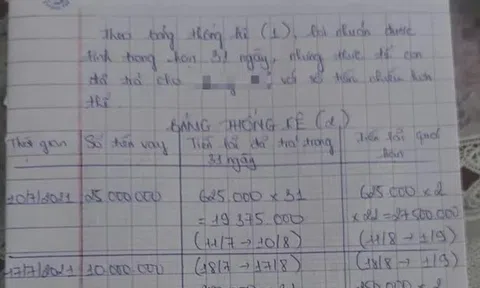 Theo bảng thống kê (1), lợi nhuấn được
tính trong hạn 31 ngày, nhưng thực tế con
đã trả cho với số tiền nhiều hơn
thế.
BẢNG THỐNG KÊ (2)
Thời gian Số tiền vay Tiền lãi đã trả trong Tiền lãi quá
31 ngày hạn
10/7/2021 25.000.000 625.000 x 31 625.000 x 2
= 19375.000 x 22 = 27500.000
(11/7 → 10/8) (11/8 → 1/9)
17/7/2021 10.000.000 (18/7 → 17/8) (18/8 → 1/9)
250.000 x 2